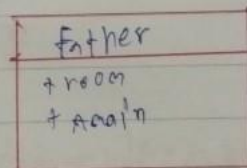 Father
+ room
+ Again